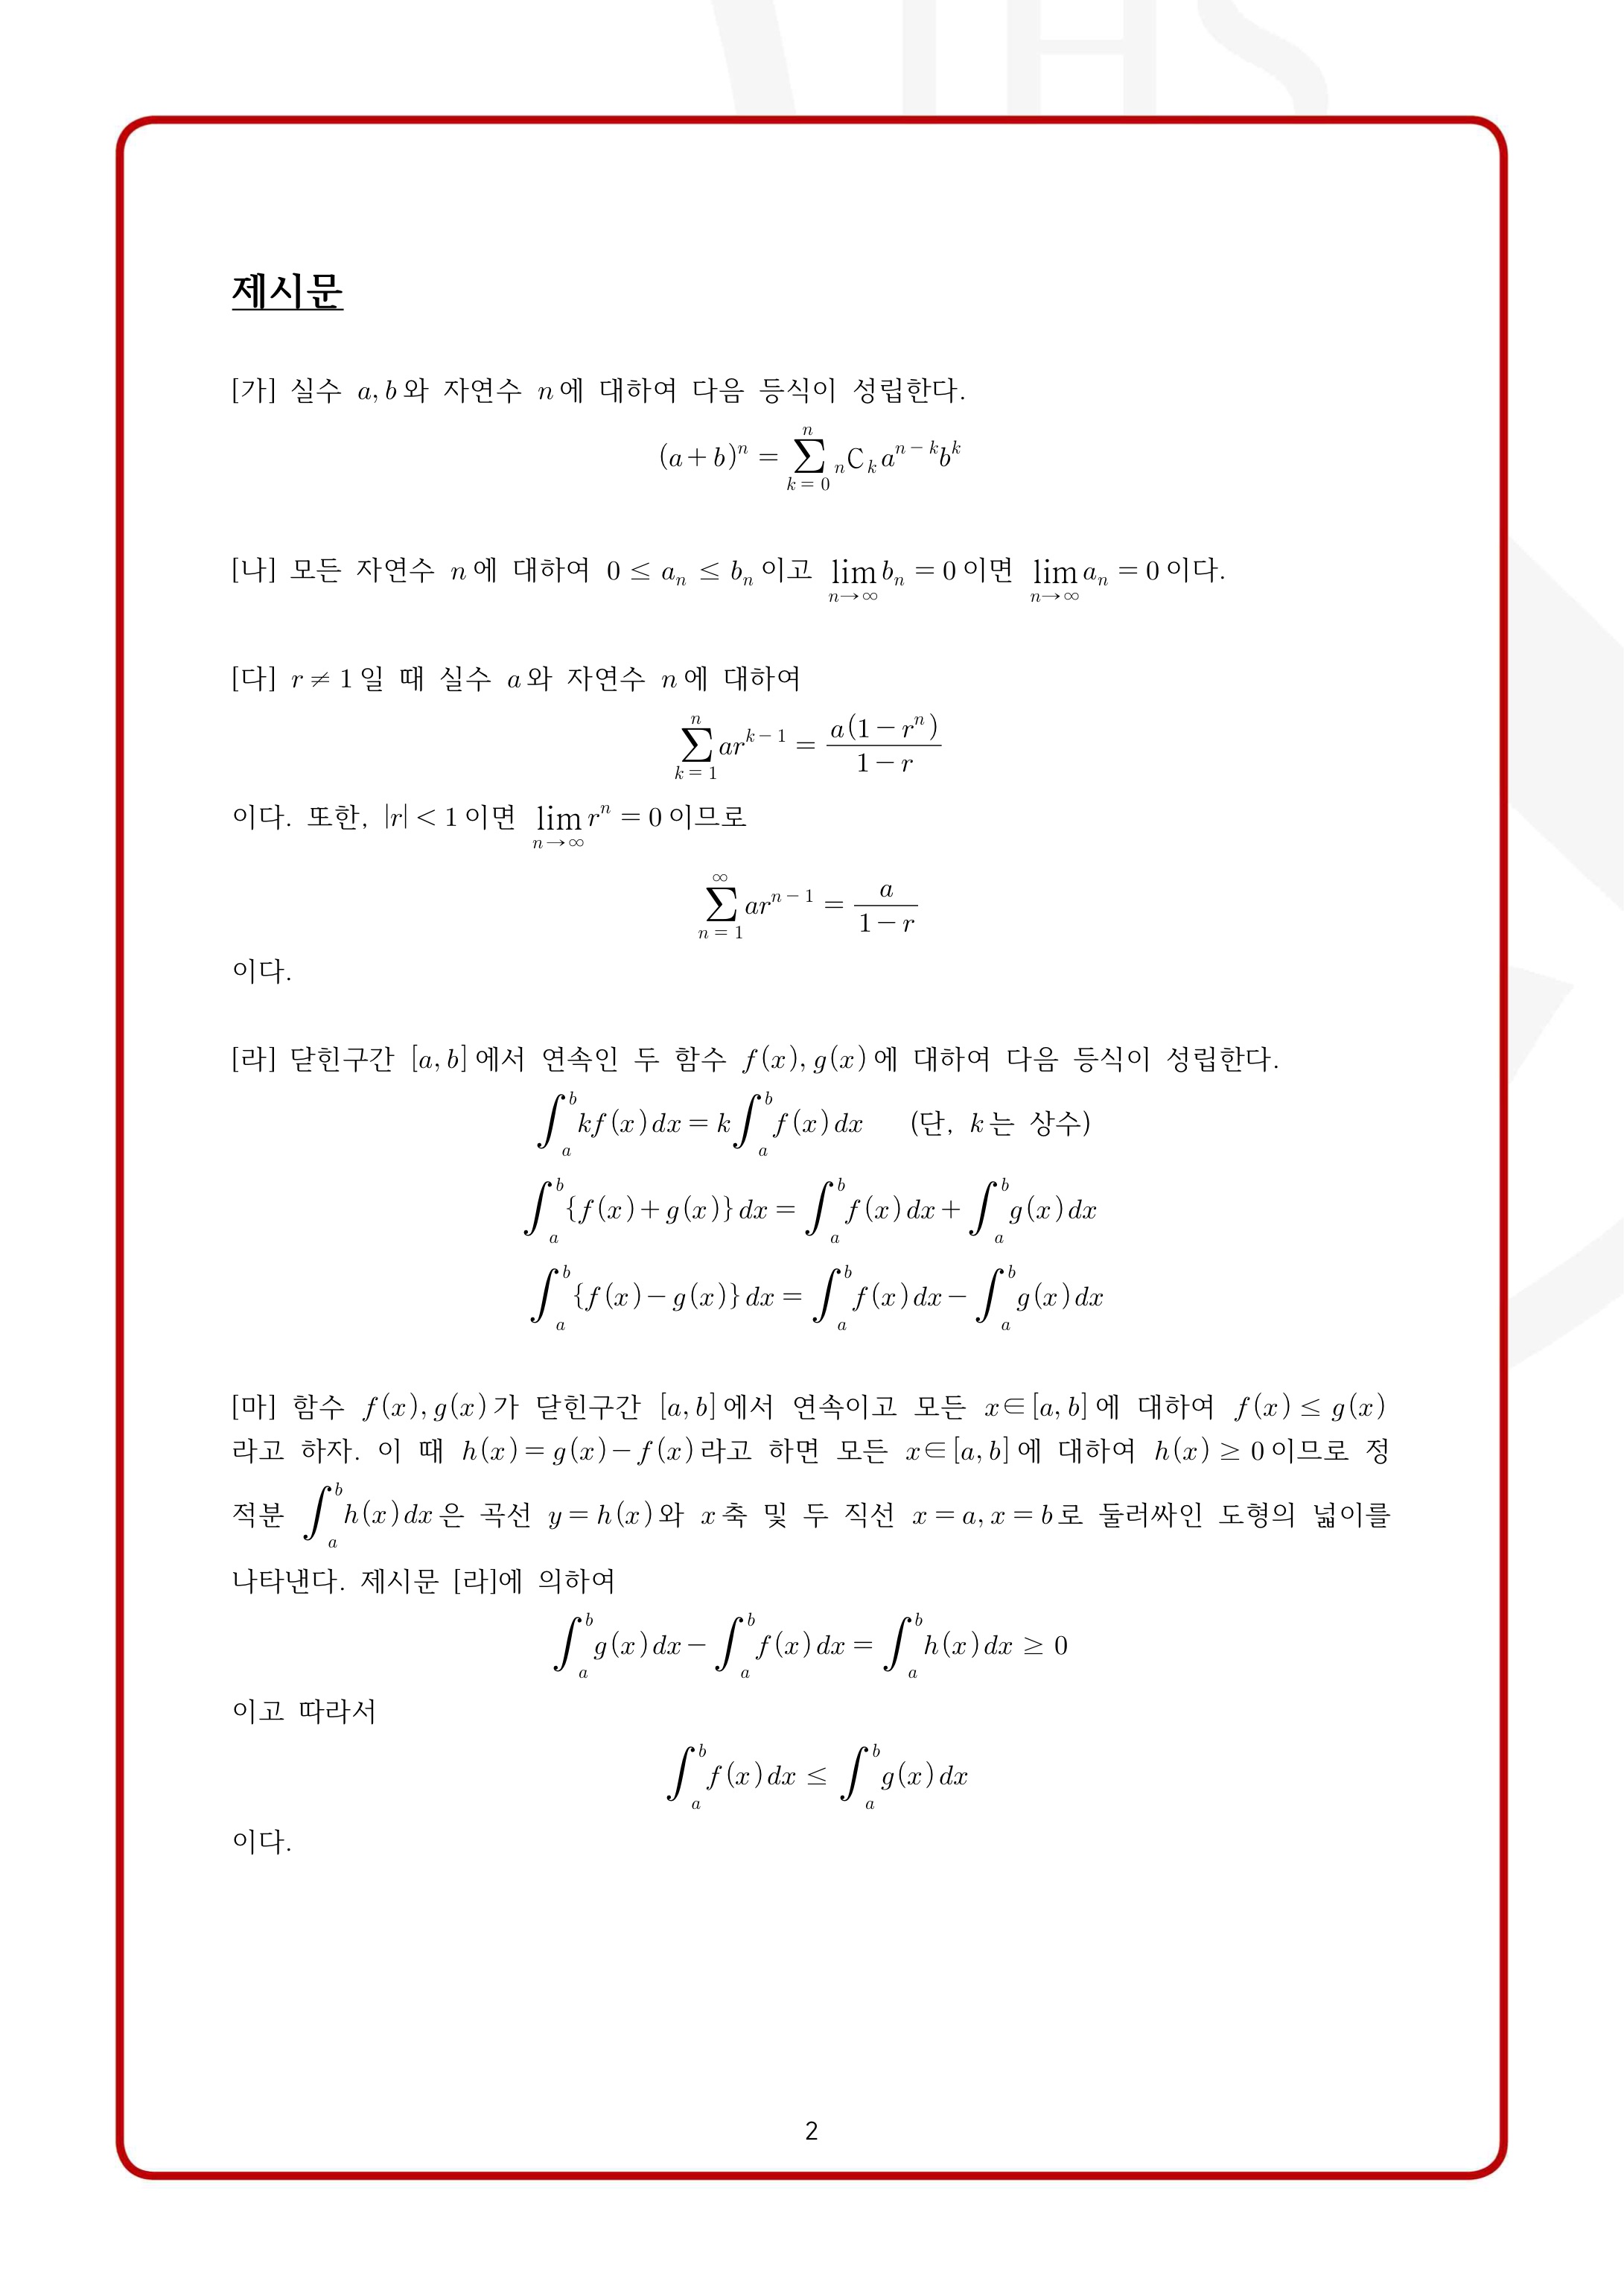 제시문
[가] 실수 a, b와 자연수 n에 대하여 다음 등식이 성립한다.
(a+b)^n = \sum_{k=0}^{n} {}_nC_k a^{n-k} b^k
[나] 모든 자연수 n에 대하여 0 ≤ a_n ≤ b_n 이고 \lim_{n→∞} b_n = 0이면 \lim_{n→∞} a_n = 0이다.
[다] r ≠ 1일 때 실수 a와 자연수 n에 대하여
\sum_{k=1}^{n} ar^{k-1} = \frac{a(1-r^n)}{1-r}
이다. 또한, |r| < 1이면 \lim_{n→∞} r^n = 0이므로
\sum_{n=1}^{∞} ar^{n-1} = \frac{a}{1-r}
이다.
[라] 닫힌구간 [a, b]에서 연속인 두 함수 f(x), g(x)에 대하여 다음 등식이 성립한다.
\int_a^b kf(x)dx = k\int_a^b f(x)dx (단, k는 상수)
\int_a^b {f(x)+g(x)}dx = \int_a^b f(x)dx + \int_a^b g(x)dx
\int_a^b {f(x)-g(x)}dx = \int_a^b f(x)dx - \int_a^b g(x)dx
[마] 함수 f(x), g(x)가 닫힌구간 [a, b]에서 연속이고 모든 x∈[a, b]에 대하여 f(x) ≤ g(x)
라고 하자. 이 때 h(x) = g(x)-f(x)라고 하면 모든 x∈[a, b]에 대하여 h(x) ≥ 0이므로 정
적분 \int_a^b h(x)dx은 곡선 y = h(x)와 x축 및 두 직선 x = a, x = b로 둘러싸인 도형의 넓이를
나타낸다. 제시문 [라]에 의하여
\int_a^b g(x)dx - \int_a^b f(x)dx = \int_a^b h(x)dx ≥ 0
이고 따라서
\int_a^b f(x)dx ≤ \int_a^b g(x)dx
이다.
2